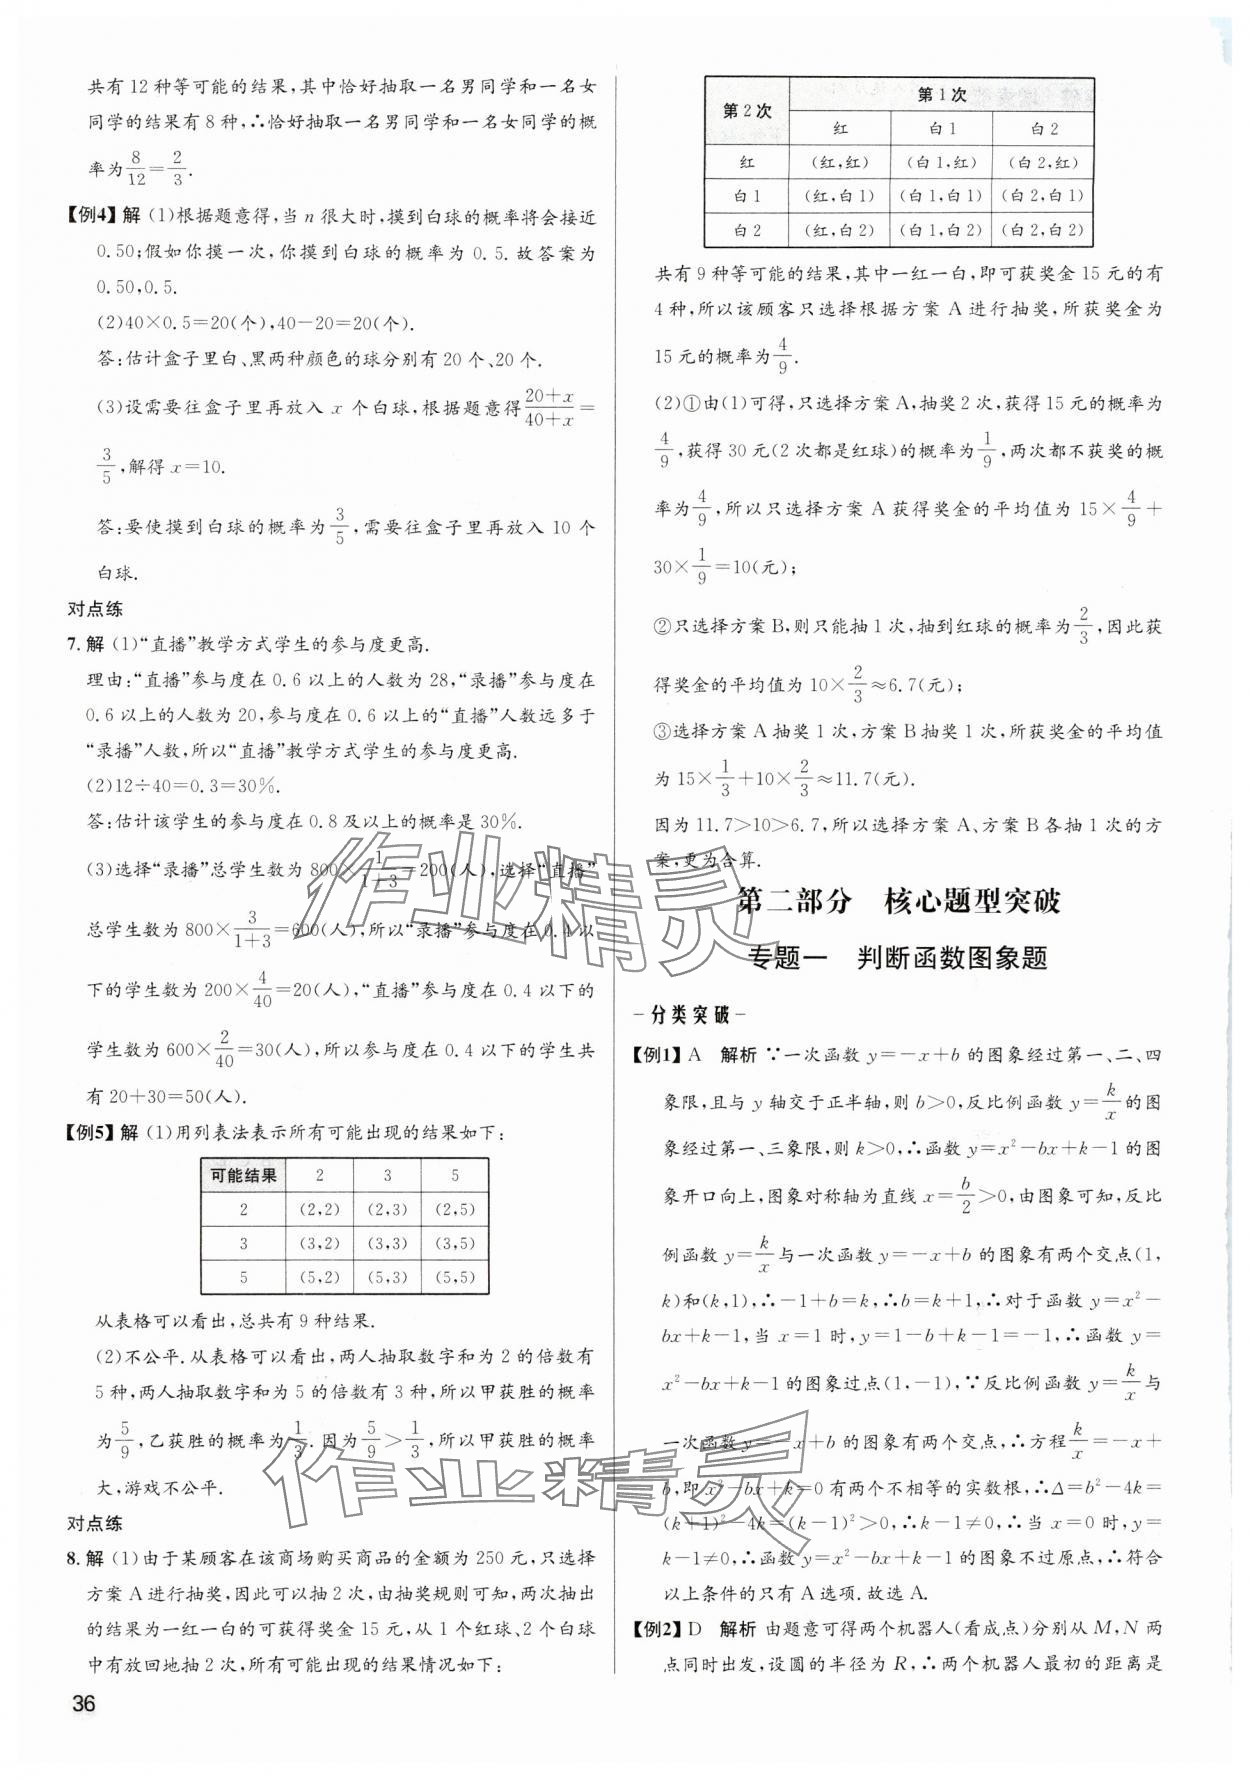 共有12种等可能的结果,其中恰好抽取一名男同学和一名女
同学的结果有8种,∴恰好抽取一名男同学和一名女同学的概
率为8/12=2/3.
【例4】解 (1)根据题意得,当n很大时,摸到白球的概率将会接近
0.50;假如你摸一次,你摸到白球的概率为0.5.故答案为
0.50,0.5.
(2)40×0.5=20(个),40-20=20(个).
答:估计盒子里白、黑两种颜色的球分别有20个、20个.
(3)设需要往盒子里再放入x个白球,根据题意得(20+x)/(40+x)=
3/5,解得x=10.
答:要使摸到白球的概率为3/5,需要往盒子里再放入10个
白球.
对点练
7.解 (1)“直播”教学方式学生的参与度更高.
理由:“直播”参与度在0.6以上的人数为28,“录播”参与度在
0.6以上的人数为20,参与度在0.6以上的“直播”人数远多于
“录播”人数,所以“直播”教学方式学生的参与度更高.
(2)12÷40=0.3=30%.
答:估计该学生的参与度在0.8及以上的概率是30%.
(3)选择“录播”总学生数为800×1/(1+3)=200(人),选择“直播”
总学生数为800×3/(1+3)=600(人),所以“录播”参与度在0.4以
下的学生数为200×4/40=20(人),“直播”参与度在0.4以下的
学生数为600×2/40=30(人),所以参与度在0.4以下的学生共
有20+30=50(人).
【例5】解 (1)用列表法表示所有可能出现的结果如下:
可能结果 2 3 5
2 (2,2) (2,3) (2,5)
3 (3,2) (3,3) (3,5)
5 (5,2) (5,3) (5,5)
从表格可以看出,总共有9种结果.
(2)不公平.从表格可以看出,两人抽取数字和为2的倍数有
5种,两人抽取数字和为5的倍数有3种,所以甲获胜的概率
为5/9,乙获胜的概率为1/3.因为5/9>1/3,所以甲获胜的概率
大,游戏不公平.
对点练
8.解 (1)由于某顾客在该商场购买商品的金额为250元,只选择
方案A进行抽奖,因此可以抽2次,由抽奖规则可知,两次抽出
的结果为一红一白的可获得奖金15元,从1个红球、2个白球
中有放回地抽2次,所有可能出现的结果情况如下:
36
第2次 第1次
红 白1 白2
红 (红,红) (白1,红) (白2,红)
白1 (红,白1) (白1,白1) (白2,白1)
白2 (红,白2) (白1,白2) (白2,白2)
共有9种等可能的结果,其中一红一白,即可获奖金15元的有
4种,所以该顾客只选择根据方案A进行抽奖,所获奖金为
15元的概率为4/9.
(2)①由(1)可得,只选择方案A,抽奖2次,获得15元的概率为
4/9,获得30元(2次都是红球)的概率为1/9,两次都不获奖的概
率为4/9,所以只选择方案A获得奖金的平均值为15×4/9+
30×1/9=10(元);
②只选择方案B,则只能抽1次,抽到红球的概率为2/3,因此获
得奖金的平均值为10×2/3≈6.7(元);
③选择方案A抽奖1次,方案B抽奖1次,所获奖金的平均值
为15×1/3+10×2/3≈11.7(元).
因为11.7>10>6.7,所以选择方案A、方案B各抽1次的方
案,更为合算.
第二部分 核心题型突破
专题一 判断函数图象题
-分类突破-
【例1】A 解析 ∵一次函数y=-x+b的图象经过第一、二、四
象限,且与y轴交于正半轴,则b>0,反比例函数y=k/x的图
象经过第一、三象限,则k>0,∴函数y=x²-bx+k-1的图
象开口向上,图象对称轴为直线x=b/2>0,由图象可知,反比
例函数y=k/x与一次函数y=-x+b的图象有两个交点(1,
k)和(k,1),∴-1+b=k,∴b=k+1,∴对于函数y=x²-
bx+k-1,当x=1时,y=1-b+k-1=-1,∴函数y=
x²-bx+k-1的图象过点(1,-1),∵反比例函数y=k/x与
一次函数y=-x+b的图象有两个交点,∴方程k/x=-x+
b,即x²-bx+k=0有两个不相等的实数根,∴Δ=b²-4k=
(k+1)²-4k=(k-1)²>0,∴k-1≠0,∴当x=0时,y=
k-1≠0,∴函数y=x²-bx+k-1的图象不过原点,∴符合
以上条件的只有A选项.故选A.
【例2】D 解析 由题意可得两个机器人(看成点)分别从M,N两
点同时出发,设圆的半径为R,∴两个机器人最初的距离是
作业精灵
作业精灵